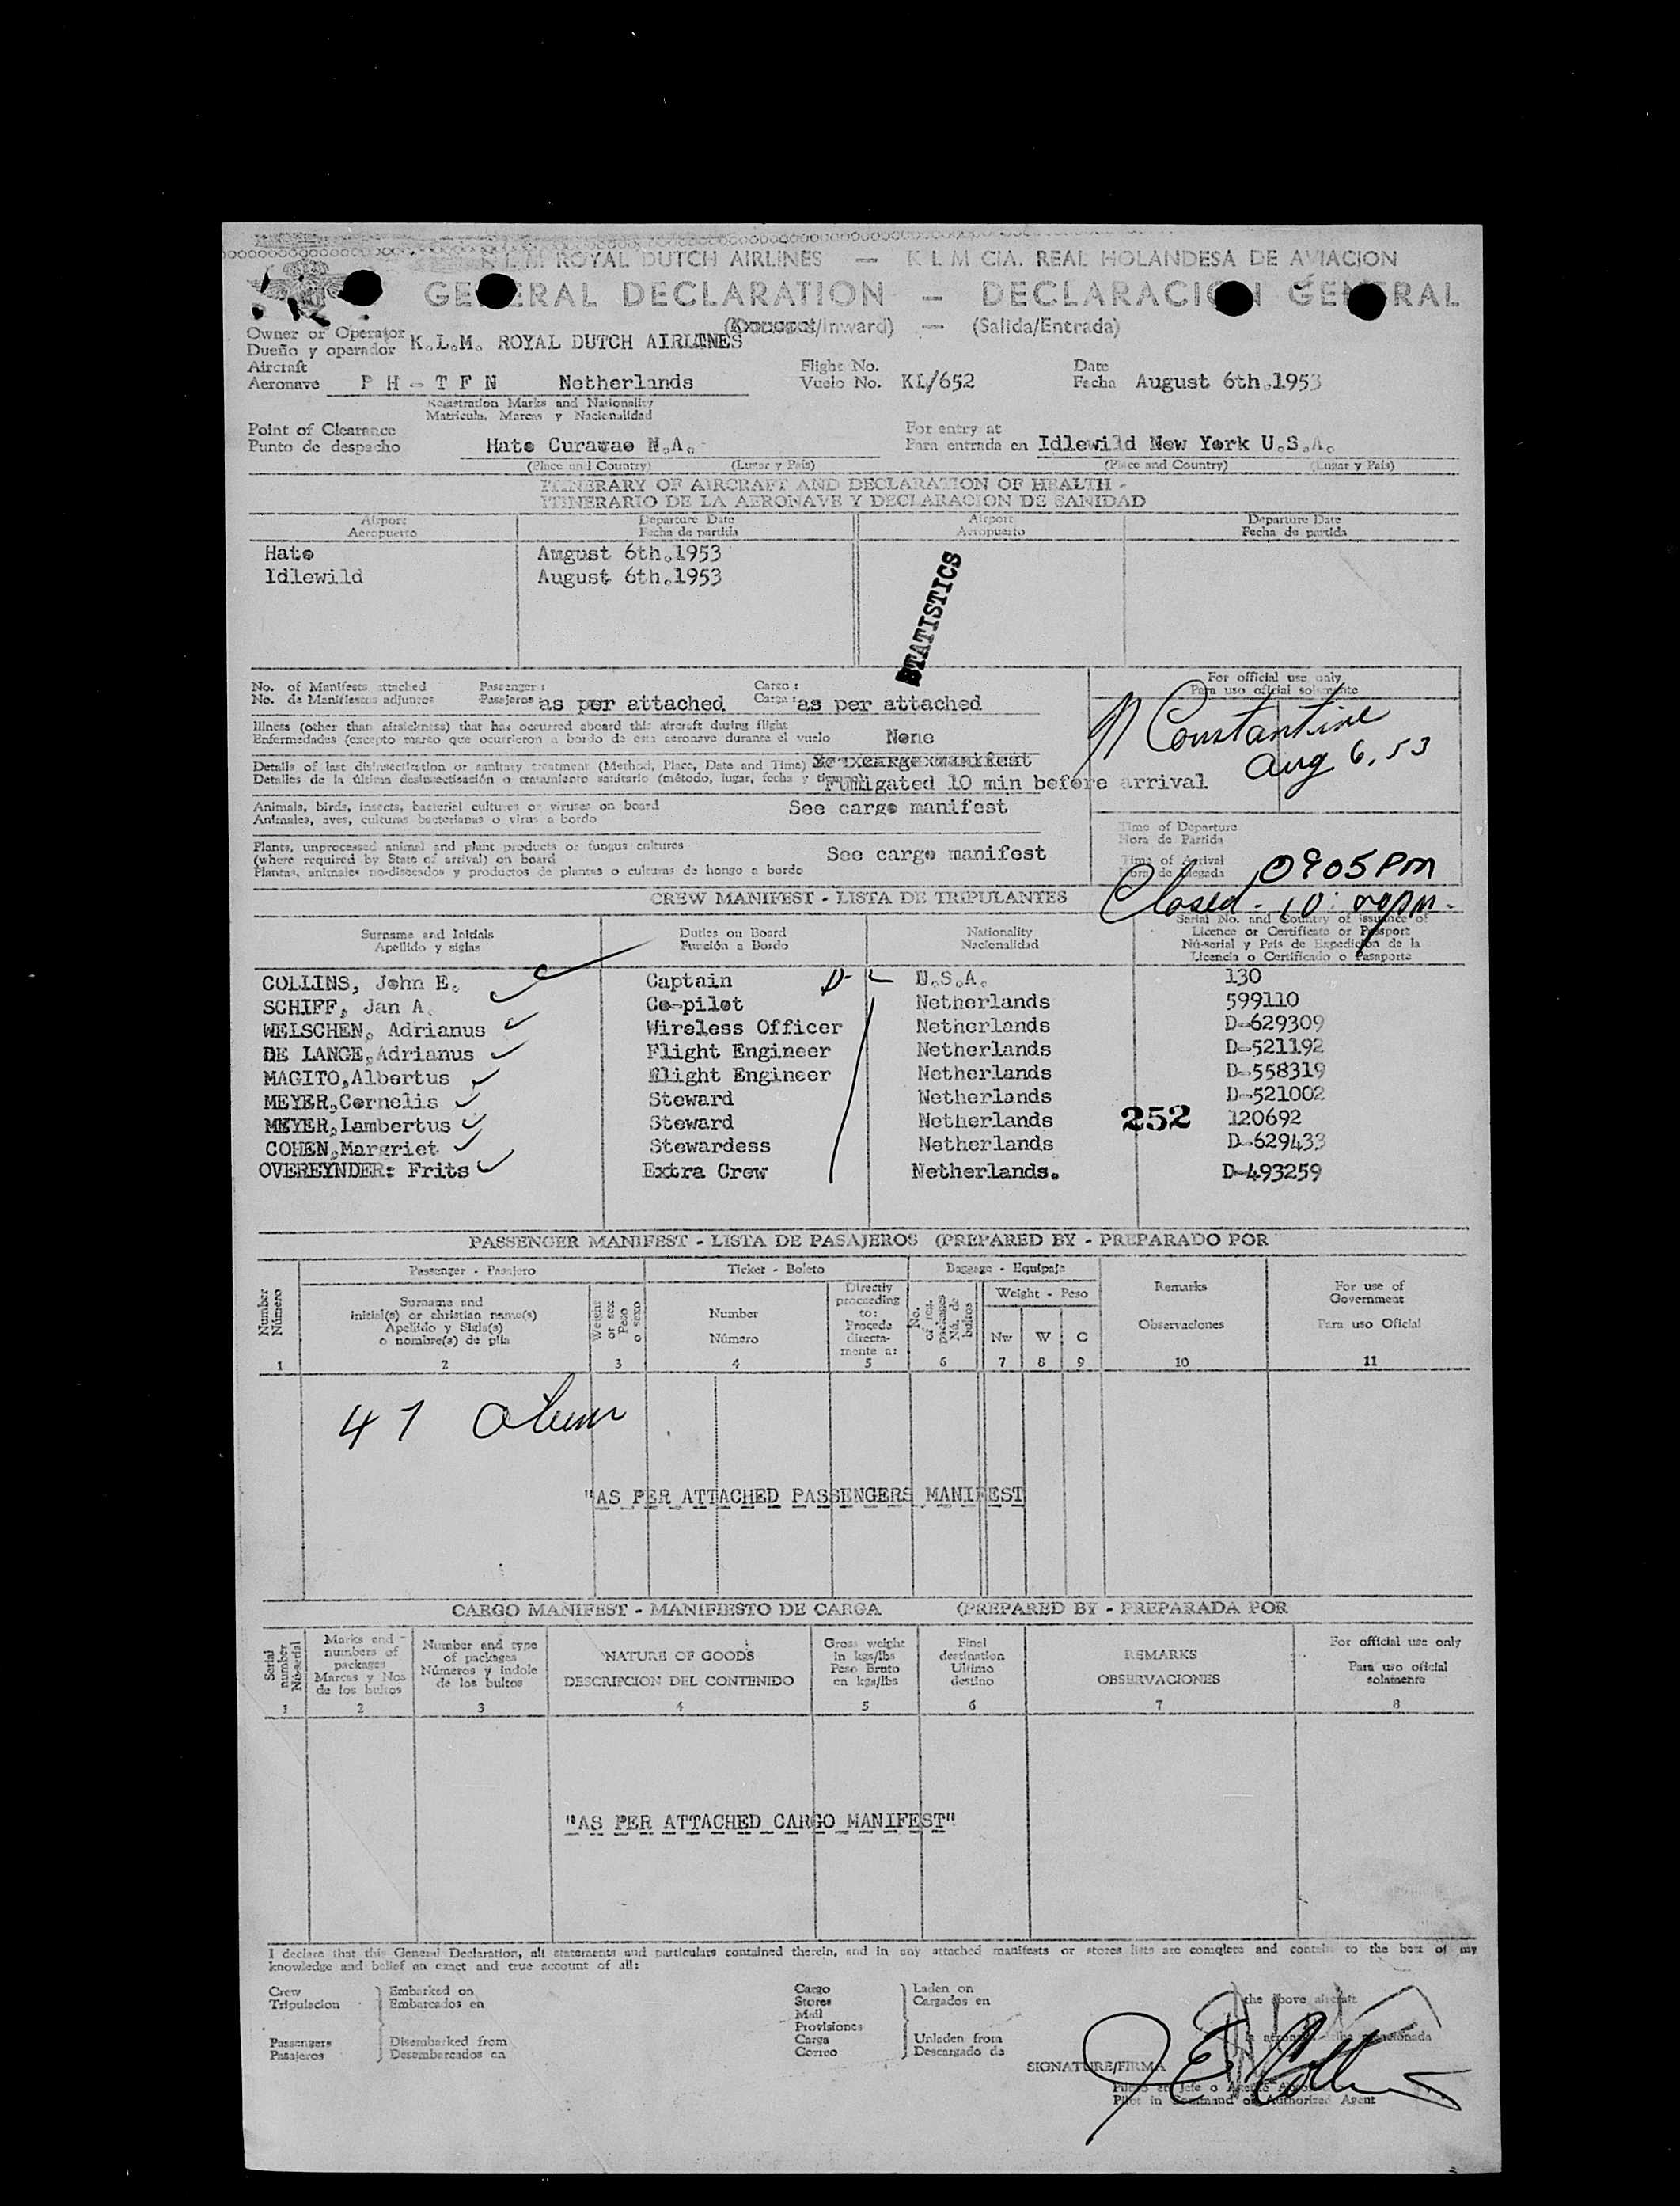 K L M ROYAL DUTCH AIRLINES — K L M CIA. REAL HOLANDESA DE AVIACION
GENERAL DECLARATION — DECLARACION GENERAL
/Inward) — (Salida/Entrada)
Owner or Operator
Dueño y operador K.L.M. ROYAL DUTCH AIRLINES
Aircraft Flight No. Date
Aeronave PH-TFN Netherlands Vuelo No. KL/652 Fecha August 6th.1953
Registration Marks and Nationality
Matricula. Marcas y Nacionalidad
Point of Clearance For entry at
Punto de despacho Hato Curawao N.A. Para entrada en Idlewild New York U.S.A.
(Place and Country) (Lugar y País) (Place and Country) (Lugar y País)
ITINERARY OF AIRCRAFT AND DECLARATION OF HEALTH -
ITINERARIO DE LA AERONAVE Y DECLARACION DE SANIDAD
Airport Departure Date Airport Departure Date
Aeropuerto Fecha de partida Aeropuerto Fecha de partida
Hato August 6th.1953
Idlewild August 6th.1953
STATISTICS
No. of Manifests attached Passenger: Cargo:
No. de Manifiestos adjuntos Pasajeros as per attached Carga: as per attached
For official use only
Para uso oficial solamente
Constantine
Aug 6, 53
Illness (other than airsickness) that has occurred aboard this aircraft during flight
Enfermedades (excepto mareo que ocurrieron a bordo de esta aeronave durante el vuelo None
Details of last disinsectization or sanitary treatment (Method, Place, Date and Time)
Detalles de la última desinsectisación o tratamiento sanitario (método, lugar, fecha y Fumigated 10 min before arrival
Animals, birds, insects, bacterial cultures or viruses on board
Animales, aves, culturas bacterianas o virus a bordo See cargo manifest
Plants, unprocessed animal and plant products or fungus cultures
(where required by State of arrival) on board See cargo manifest
Plantas, animales no-disecados y productos de plantas o culturas de hongo a bordo
Time of Departure
Hora de Partida
Time of Arrival
Hora de Llegada 0905 PM
Closed -
CREW MANIFEST - LISTA DE TRIPULANTES
Surname and Initials Duties on Board Nationality Serial No. and Country of issuance of
Apellido y siglas Función a Bordo Nacionalidad Licence or Certificate or Passport
Nú-serial y País de Expedición de la
Licencia o Certificado o Pasaporte
COLLINS, John E. Captain U.S.A. 130
SCHIFF, Jan A. Co-pilot Netherlands 599110
WELSCHEN, Adrianus Wireless Officer Netherlands D-629309
DE LANGE, Adrianus Flight Engineer Netherlands D-521192
MAGITO, Albertus Flight Engineer Netherlands D-558319
MEYER, Cornelis Steward Netherlands D-521002
MEYER, Lambertus Steward Netherlands 252 120692
COHEN, Margriet Stewardess Netherlands D-629433
OVEREYNDER: Frits Extra Crew Netherlands. D-493259
PASSENGER MANIFEST - LISTA DE PASAJEROS (PREPARED BY - PREPARADO POR
Passenger - Pasajero Ticket - Boleto Baggage - Equipaje
Number
Número
Surname and
initial(s) or christian name(s)
Apellido y Sigla(s)
o nombre(s) de pila
Weight
or sex
Peso
o sexo
Number
Número
Directly
proceeding
to:
Procede
directa-
mente a:
No.
of rot.
packages
Nú. de
bultos
Weight - Peso
Nw W C
Remarks
Observaciones
For use of
Government
Para uso Oficial
1 2 3 4 5 6 7 8 9 10 11
"AS PER ATTACHED PASSENGERS MANIFEST
CARGO MANIFEST - MANIFIESTO DE CARGA (PREPARED BY - PREPARADA POR
Serial
number
Nú-serial
Marks and
numbers of
packages
Marcas y Nos
de los bultos
Number and type
of packages
Números y indole
de los bultos
NATURE OF GOODS
DESCRIPCION DEL CONTENIDO
Gross weight
in kgs/lbs
Peso Bruto
en kgs/lbs
Final
destination
Ultimo
destino
REMARKS
OBSERVACIONES
For official use only
Para uso oficial
solamente
1 2 3 4 5 6 7 8
"AS PER ATTACHED CARGO MANIFEST"
I declare that this General Declaration, all statements and particulars contained therein, and in any attached manifests or stores lists are comqlete and contain to the best of my
knowledge and belief an exact and true account of all:
Crew Embarked on Cargo Laden on
Tripulacion Embarcados en Stores Cargados en the above aircraft
Mail
Provisiones
Passengers Disembarked from Carga Unladen from
Pasajeros Desembarcados en Correo Descargado de
SIGNATURE/FIRMA J E Collins
Pilot in Command or Authorized Agent